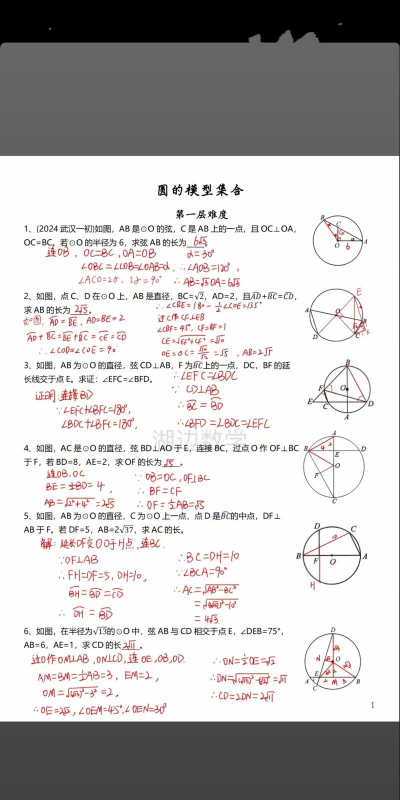 圆的模型集合
第一层难度
1、(2024 武汉一初)如图，AB 是⊙O 的弦，C 是 AB 上的一点，且 OC⊥OA，
OC=BC，若⊙O 的半径为 6，求弦 AB 的长为 6√3
连OB，OC=BC，OA=OB
∠OBC=∠COB=∠OAB=α
∠ACO=2α，3α=90°
α=30°
∴∠AOB=120°，
∴AB=√3OA=6√3
2、如图，点 C、D 在⊙O 上，AB 是直径，BC=√2，AD=2，且
求 AB 的长为 2√5
∴∠COD=∠COE=90°
∠CBF=45°，CF=BF=1
，AB=2√5
3、如图，AB 为⊙O 的直径，弦 CD⊥AB，F 为
上的一点，DC，BF 的延
长线交于点 E。求证：∠EFC=∠BFD。
证明：连接BD
∵∠EFC+∠BFC=180°，
∠BDC+∠BFC=180°，
∴∠EFC=∠BDC
∵CD⊥AB
∴∠BFD=∠BDC=∠EFC
湖边数学
4、如图，AC 是⊙O 的直径，弦 BD⊥AO 于 E，连接 BC，过点 O 作 OF⊥BC
于 F，若 BD=8，AE=2，求 OF 的长为 √5
连OB.OC
BE=½BD=4，
AB=√2²+4²=2√5
∵OB=OC，OF⊥BC
∴BF=CF
∴OF=½AB=√5
5、如图，AB 为⊙O 的直径，C 为⊙O 上一点，点 D 是
的中点，DF⊥
AB 于 F，若 DF=5，AB=2√37，求 AC 的长。
解：延长DF交⊙O于H点，连BC.
∵DF⊥AB
∴FH=DF=5，DH=10，
∴BC=DH=10
∵∠BCA=90°
∴AC=√AB²-BC²
=4√3
6、如图，在半径为√13的⊙O 中，弦 AB 与 CD 相交于点 E，∠DEB=75°，
AB=6，AE=1，求 CD 的长 2√11 。
过O作OM⊥AB，ON⊥CD，连OE，OB，OD.
AM=BM=½AB=3，EM=2，
OM=√(√13)²-3²=2，
∴OE=2√2，∠OEM=45°，∠OEN=30°
∴ON=½OE=√2
∴CD=2DN=2√11
1